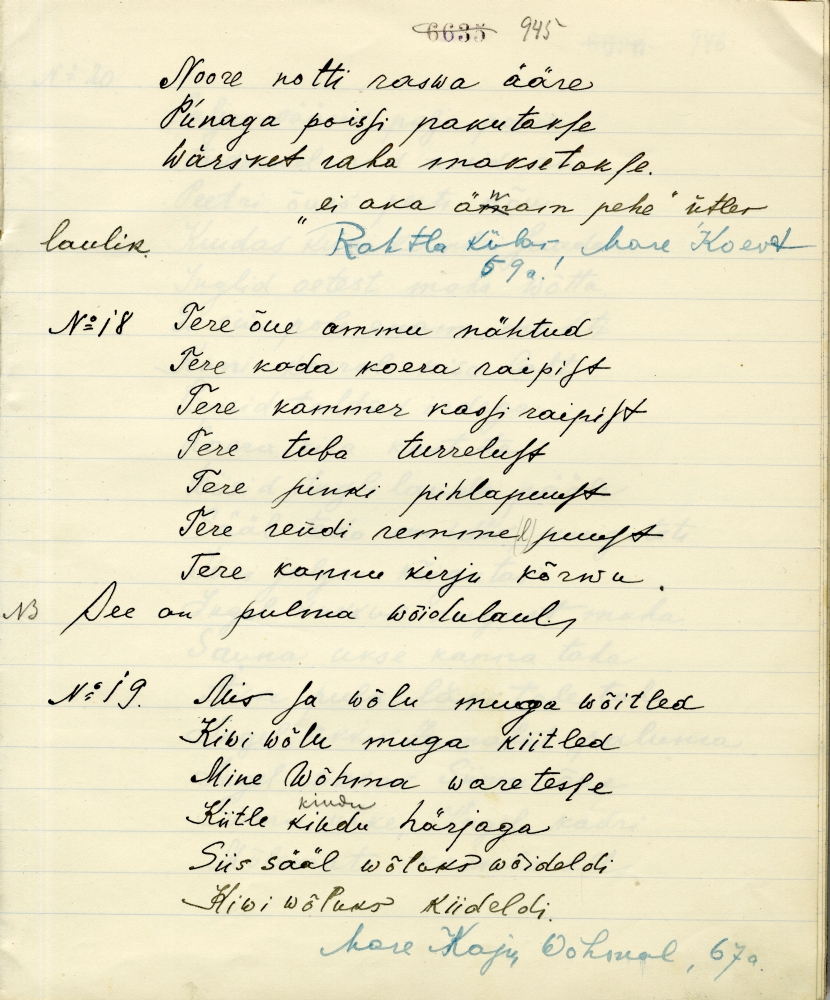 6635 945
Noore notti raswa ääre
Pünaga poissi pakutakse
Wärsket raha maksetakse.
"ei aka ämain pehe" ütles
laulik. Rahtla külas, Mare Koert
59 a.
№ 18 Tere õue ammu nähtud
Tere koda koera raipist
Tere kammer kassi raipist
Tere tuba turrelust
Tere pinki pihlapuust
Tere reüdi remme(l)puust
Tere kannu kirju kõrwu.
NB See on pulma wõidulaul,
№ 19. Mis sa wõlu muuga wõitled
Kiwi wõlu muga kiitled
Mine Wõhma waretesse
kindu
Kiitle kindu härjaga
Siis sääl wõluks wõideldi
Kiwi wõluks kiideldi.
Mare Kaju, Wõhmal, 67 a.